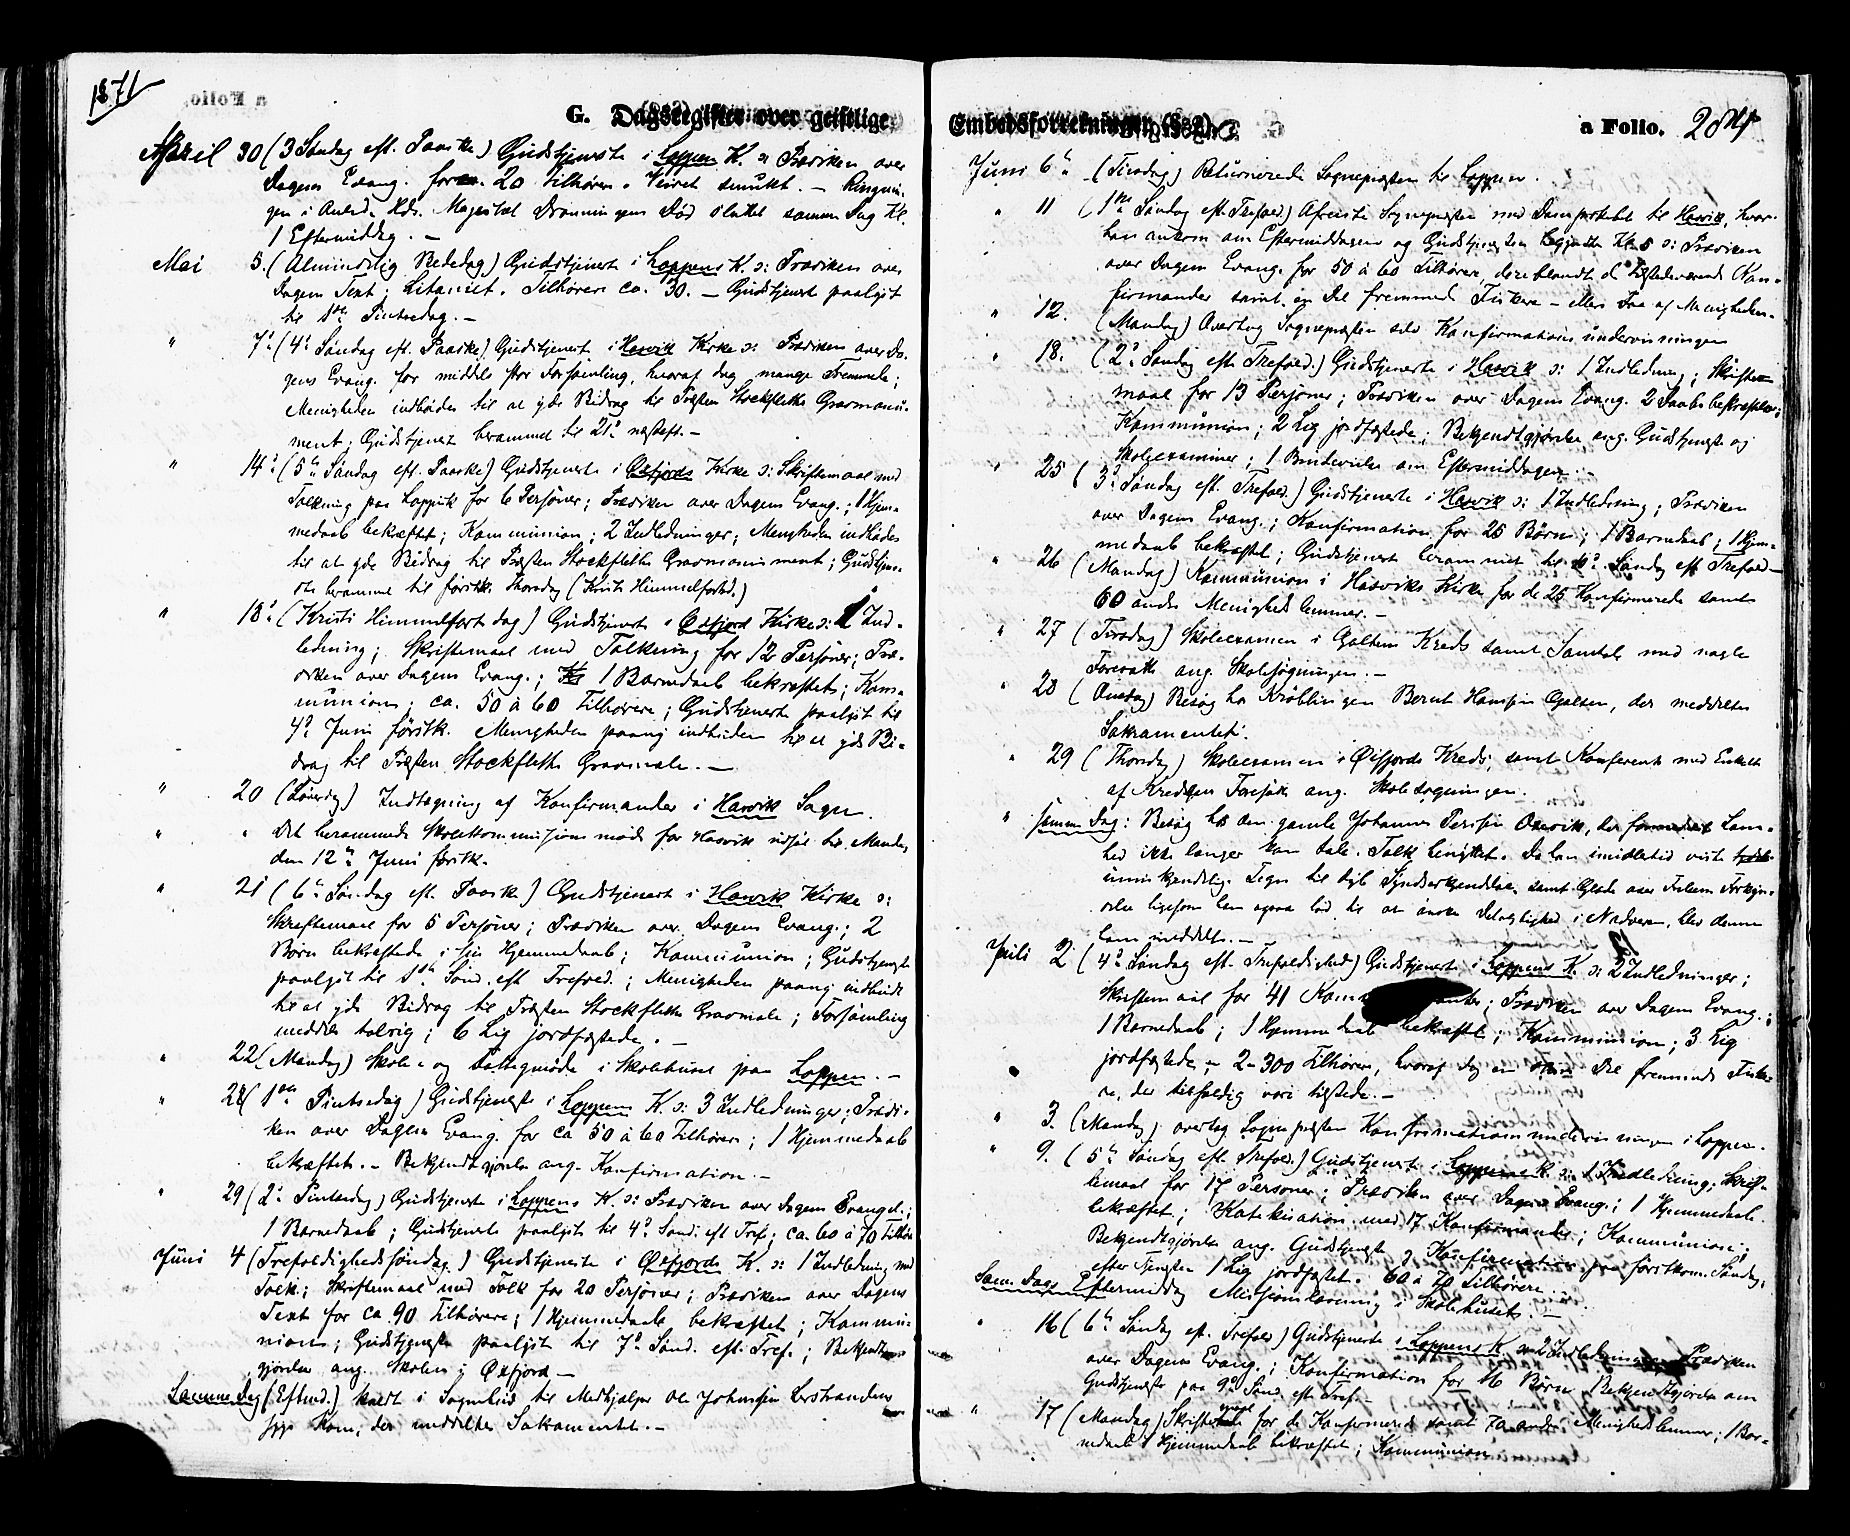 1871
G. Dagsregister over geistlige
April 30 (3 Søndag eft. Paaske) Gudstjeneste i Loppens K. ɔ: Prædiken over
Dagens Evang. for ca. 20 Tilhørere. Veiret smukt. — Ringnin-
gen i Anled. Hds. Majestæt Dronningens Død sluttet samme Dag Kl.
1 Eftermiddag. —
Mai 5. (Almindelig Bededag) Gudstjeneste i Loppens K. ɔ: Prædiken over
Dagens Text; Litaniet. Tilhørere ca. 30. — Gudstjenest paalyst
til 1ste Pintsedag. —
" 7de (4de Søndag eft. Paaske) Gudstjeneste i Hasvik Kirke ɔ: Prædiken over Da-
gens Evang. for middels stor Forsamling, hvoraf dog mange Fremmede;
Menigheden indbødes til at yde Bidrag til Præsten Stockfleths Gravmonu-
ment; Gudstjenest berammet til 21de næsteft. —
" 14de (5te Søndag eft. Paaske) Gudstjeneste i Øxfjords Kirke ɔ: Skriftemaal med
Tolkning paa Lappisk for 6 Personer; Prædiken over Dagens Evang.; 1 Hjem-
medaab bekræftet; Kommunion; 2 Indledninger; Menigheden indbødes
til at yde Bidrag til Præsten Stockfleths Gravmonument; Gudstjene-
ste berammet til førstk. Thorsdag (Kristi Himmelfartsd.)
" 18de (Kristi Himmelfartsdag) Gudstjeneste i Øxfjord Kirke ɔ: 1 Ind-
ledning; Skriftemaal med Tolkning for 12 Personer; Præ-
diken over Dagens Evang.; 1 Barnedaab bekræftet; Kom-
munion; ca. 50 à 60 Tilhørere; Gudstjeneste paalyst til
4de Juni førstk. Menigheden paany indbuden til at yde Bi-
drag til Præsten Stockfleths Gravmæle. —
" 20 (Løverdag) Indtegning af Konfirmander i Hasvik Sogn.
" " Det berammede Skolekommissionsmøde for Hasvik udsat til Mandag
den 12te Juni førstk.
" 21 (6te Søndag eft. Paaske) Gudstjeneste i Hasvik Kirke ɔ:
Skriftemaal for 5 Personer; Prædiken over Dagens Evang.; 2
Børn bekræftede i sin Hjemmedaab; Kommunion; Gudstjeneste
paalyst til 1ste Sønd. eft. Trefold.; Menigheden paany indbudt
til at yde Bidrag til Præsten Stockfleths Gravmæle; Forsamling
meddels talrig; 6 Lig jordfæstede. —
" 22 (Mandag) Skole- og Fattigmøde i Skolehuset paa Loppen. —
" 28 (1ste Pintsedag) Gudstjeneste i Loppens K. ɔ: 3 Indledninger; Prædi-
ken over Dagens Evang. for ca 50 à 60 Tilhørere; 1 Hjemmedaab
bekræftet. — Bekjendtgjørelse ang. Konfirmation. —
" 29 (2den Pintsedag) Gudstjeneste i Loppens K. ɔ: Prædiken over Dagens Evangel.;
1 Barnedaab; Gudstjeneste paalyst til 4de Sønd. eft Tref.; ca. 60 à 70 Tilhør
Juni 4 (Trefoldighedssøndag) Gudstjeneste i Øxfjords K. ɔ: 1 Indledning med
Tolk.; Skriftemaal med Tolk for 20 Personer; Prædiken over Dagens
Text for ca. 90 Tilhørere; 1 Hjemmedaab bekræftet; Kommu-
nion; Gudstjeneste paalyst til 7de Sønd. eft. Tref.; Bekjendt-
gjørelse ang. Skolen i Øxfjord —
Samme Dag (Eftmd.) kaldt i Sognebud til Medhjælper Ole Johnsen
syge Kone, der meddeltes Sakramentet. —
Embedsforretninger
a Folio. 204
Juni 6te (Tirsdag) Returnerede Sognepræsten til Loppen.
" 11 (1ste Søndag eft. Trefold.) Afreiste Sognepræsten med Dampskibet til Hasvik, hvor-
han ankom om Eftermiddagen og Gudstjenesten begyndte Kl. 5 ɔ: Prædiken
over Dagens Evang. for 50 à 60 Tilhørere, deriblandt de tilstedeværende Kon-
firmander samt en Del fremmede Fiskere — ellers Faa af Menigheden.
" 12. (Mandag) Overtog Sognepræsten selv Konfirmationsundervisningen
" 18. (2den Søndag eft Trefold.) Gudstjeneste i Hasvik ɔ: 1 Indledning; Skrifte-
maal for 13 Personer; Prædiken over Dagens Evang. 2 Daabsbekræftelser;
Kommunion; 2 Lig jordfæstede; Bekjendtgjørelse ang. Gudstjeneste og
Skoleexaminer; 1 Brudevielse om Eftermiddagen. —
" 25 (3de Søndag eft. Trefold.) Gudstjeneste i Hasvik ɔ: 1 Indledning; Prædiken
over Dagens Evang.; Konfirmation for 25 Børn; 1 Barnedaab; 1 Hjem-
medaab bekræftet; Gudstjenest berammet til Søndag eft Trefold —
" 26 (Mandag) Kommunion i Hasviks Kirke for de 25 Konfirmerede samt
60 andre Menighedslemmer. —
" 27 (Tirsdag) Skoleexamen i Galtens Kreds samt Samtale med nogle
Foresatte ang. Skolesøgningen. —
" 28 (Onsdag) Besøg hos Krøblingen Bernt Hansen Galten, der meddeltes
Sakramentet.
" 29 (Thorsdag) Skoleexamen i Øifjords Kreds, samt Konferents med Enkelte
af Kredsens Foresatte ang. Skolesøgningen.
" samme Dag: Besøg hos den gamle Johannes Persen, der Lam-
hed ikke længer kan tale. Da han imidlertid viste
umiskjendelig Tegn til dyb Syndserkjendelse, samt Glæde over Frelsens Forkyn-
delse ligesom han ogsaa lod til at ønske Delagtighed i Nadveren, blev denne
ham meddelt. —
Juli 2 (4de Søndag eft. Trefoldighed) Gudstjeneste i Loppens K. ɔ: 2 Indledninger;
Skriftemaal for 41 Kommunikanter; Prædiken over Dagens Evang.;
1 Barnedaab; 1 Hjemmedaab bekræftet; Kommunion; 3 Lig
jordfæstede — 2–300 Tilhørere, hvoraf dog en stor Del fremmede Fiske-
re, der tilfældig vare tilstede. —
" 3. (Mandag) overtog Sognepræsten Konfirmationsundervisningen i Loppen.
" 9. (5te Søndag eft. Trefold.) Gudstjeneste i Loppens K. ɔ: 1 Indledning; Skrif-
temaal for 17 Personer; Prædiken over Dagens Evang.; 1 Hjemmedaab
bekræftet; Katekisation med 17 Konfirmander; Kommunion;
Bekjendtgjørelse ang. Gudstjeneste og Konfirmation paa førstkom. Søndag;
efter Tjenesten 1 Lig jordfæstet. 60 à 70 Tilhørere. —
Sam. Dags Eftermiddag Missionslæsning i Skolehuset. —
" 16 (6te Søndag eft. Trefold) Gudstjeneste i Loppens K. ɔ: 2 Indledninger Prædiken
over Dagens Evang.; Konfirmation for 16 Børn Bekjendtgjørelse om
Gudstjeneste paa 9de Sønd. eft Tref. —
" 17 (Mandag) Skriftemaal for de Konfirmerede samt 70 andre Menighedslemmer; 1 Bar-
nedaab 1 Hjemmedaab bekræftet; Kommunion